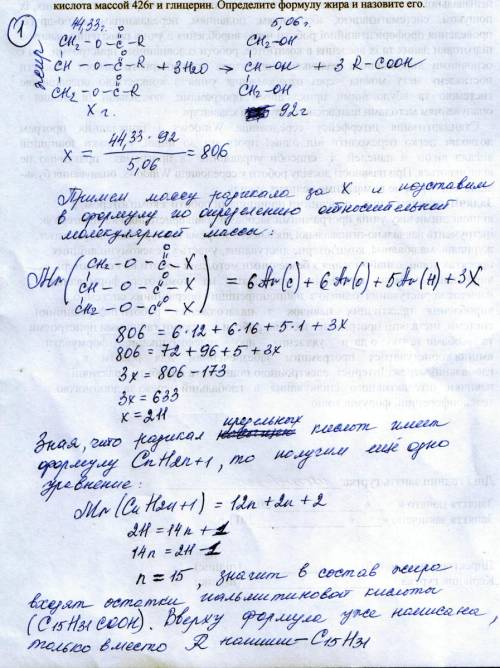 кислота массой 426г и глицерин. Определите формулу жира и назовите его.
1
44,33г. 5,06г.
CH₂ - O - C - R CH₂-OH
жир CH - O - C - R + 3H₂O → CH-OH + 3 R-COOH
CH₂ - O - C - R CH₂-OH
X г. 92г
X = 44,33 · 92 / 5,06 = 806
Примем массу радикала за X и подставим
в формулу по определению относительной
молекулярной массы:
Mr( CH₂ - O - C - X
CH - O - C - X
CH₂ - O - C - X ) = 6Ar(C) + 6Ar(O) + 5Ar(H) + 3X
806 = 6·12 + 6·16 + 5·1 + 3x
806 = 72 + 96 + 5 + 3x
3x = 806 - 173
3x = 633
x = 211
Зная, что радикал предельных кислот имеет
формулу CnH2n+1, то получим ещё одно
уравнение:
Mr(CnH2n+1) = 12n + 2n + 2
211 = 14n + 1
14n = 211 - 1
n = 15, значит в состав жира
входят остатки пальмитиновой кислоты
(C15H31COOH). Вверху формула уже написана,
только вместо R напиши - C15H31